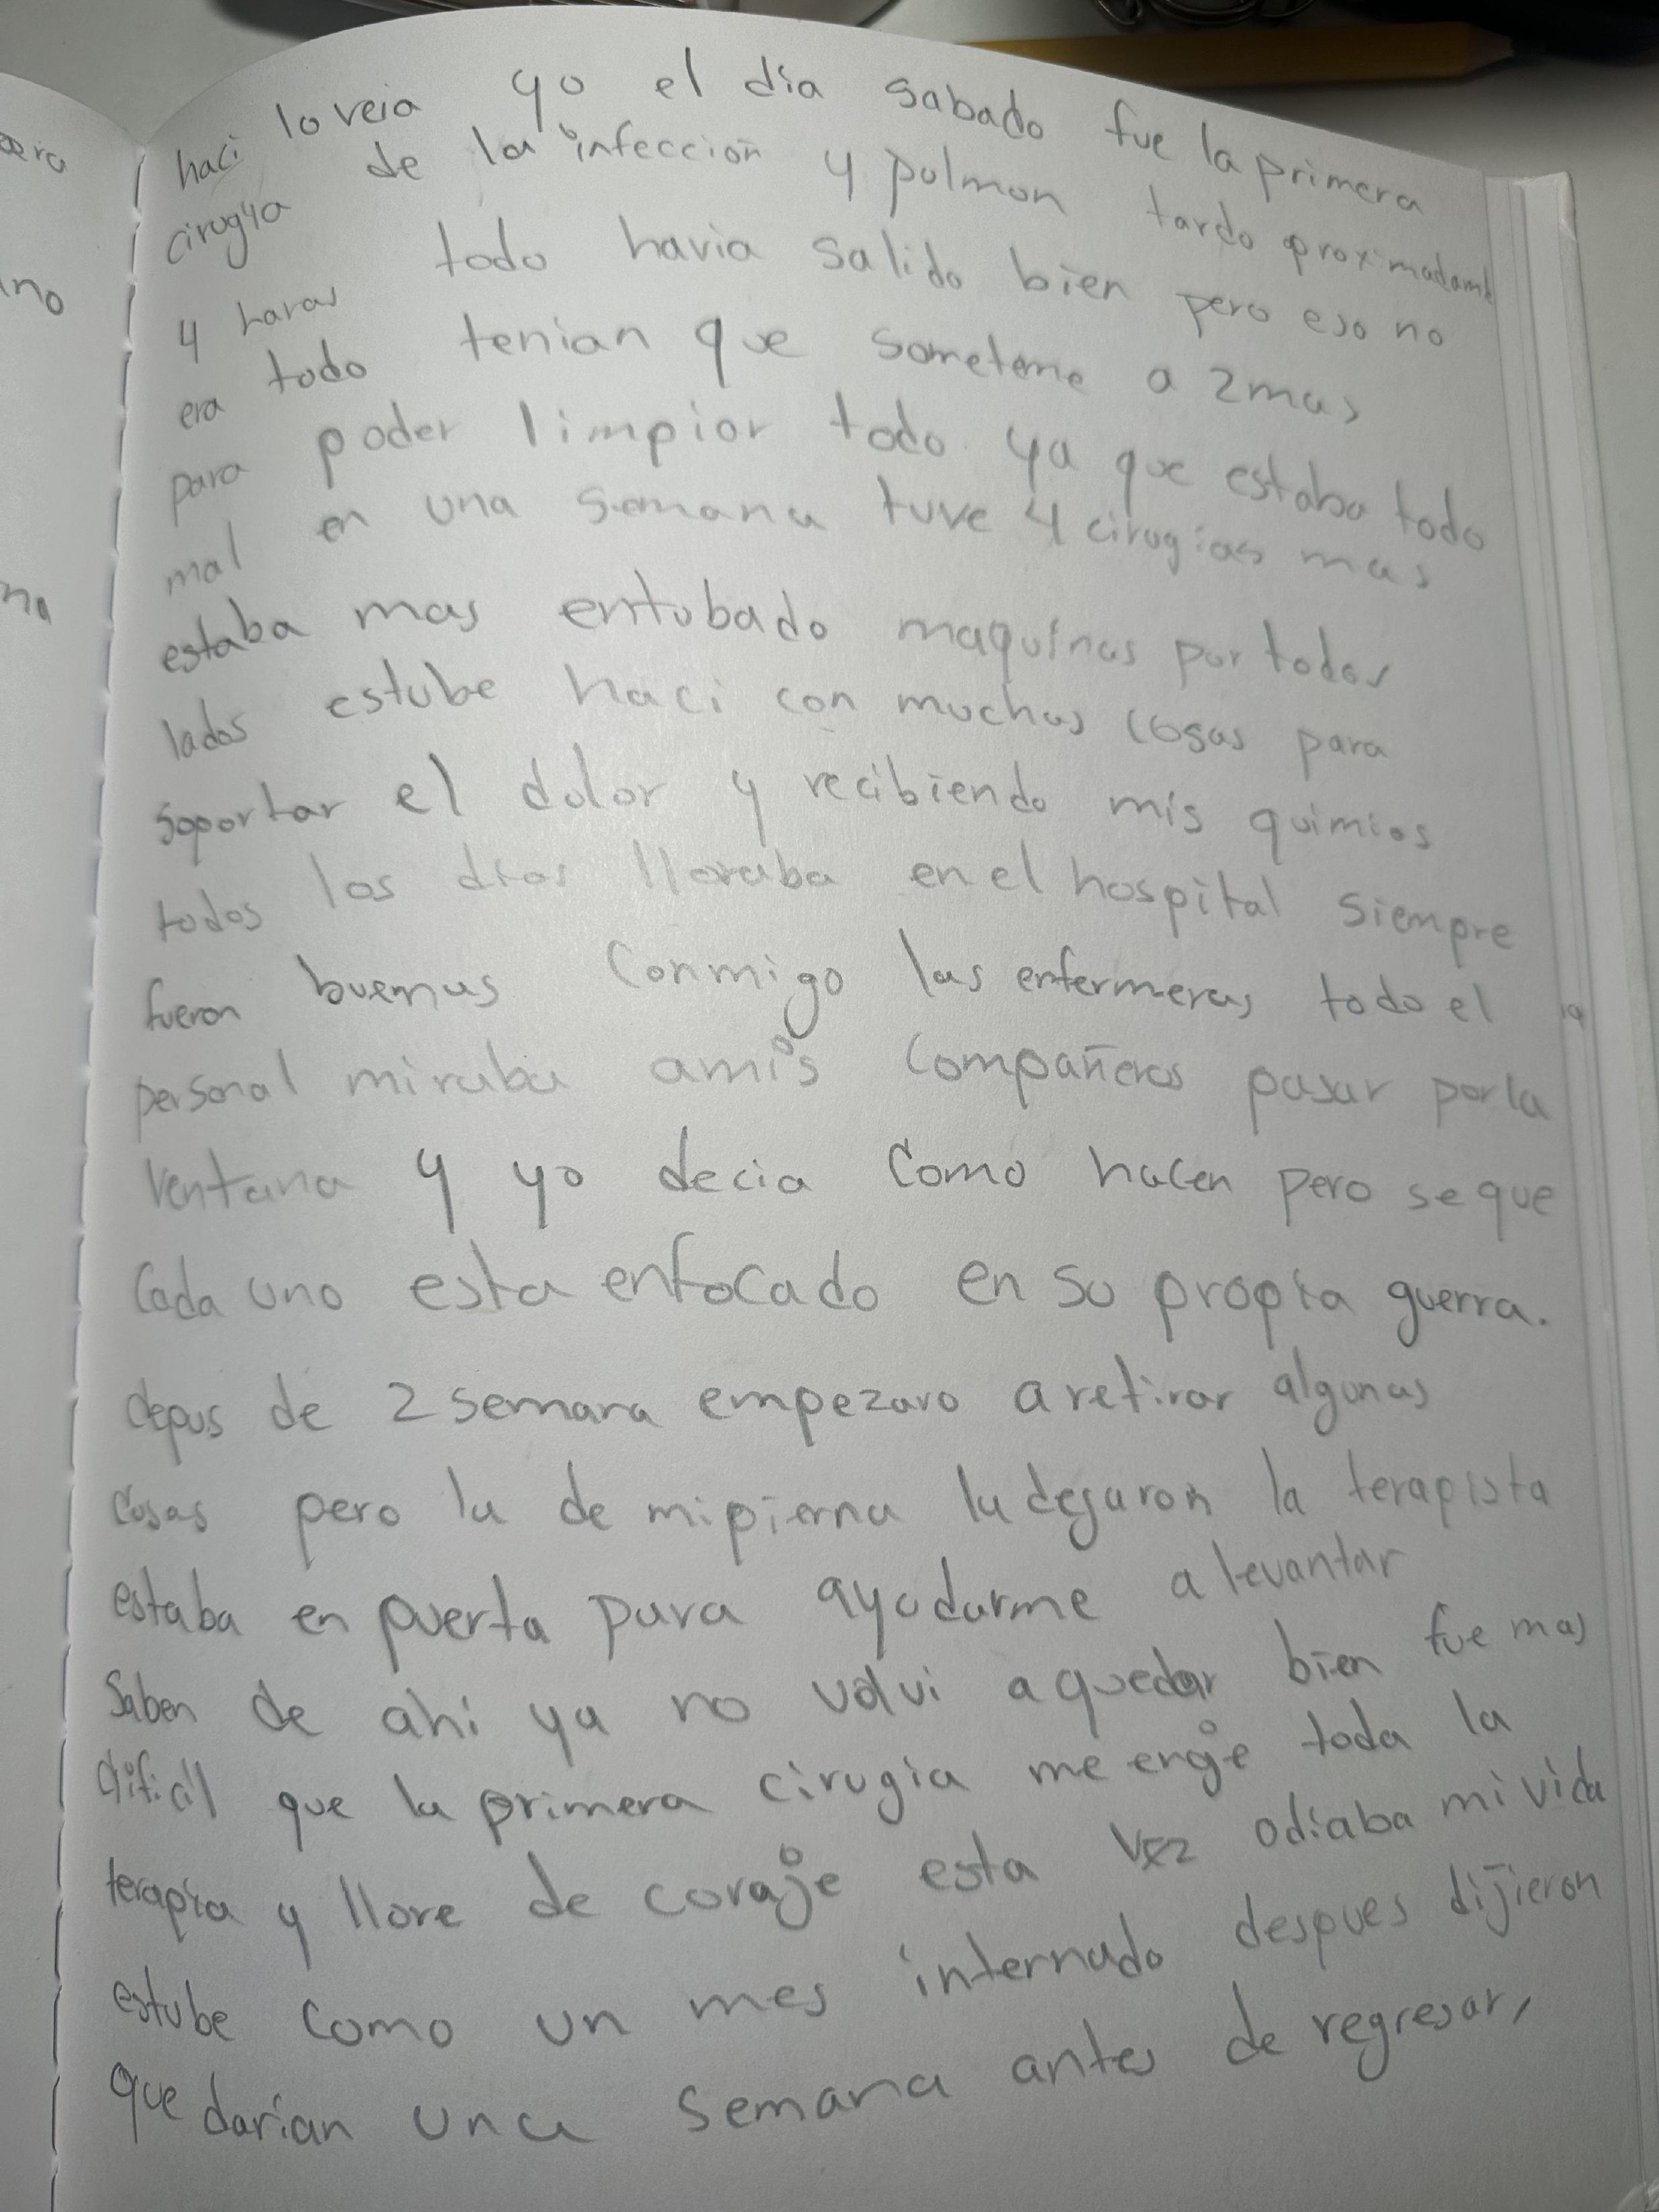 haci lo veia yo el dia sabado fue la primera
cirugya de la infeccion y pulmon tardo aproximadamt
4 haras todo havia salido bien pero eso no
era todo tenian que someteme a 2 mas
para poder limpiar todo ya que estaba todo
mal en una semana tuve 4 cirugias mas
estaba mas entubado maquinas por todos
lados estube haci con muchas cosas para
soportar el dolor y recibiendo mis quimios
todos los dias lloraba en el hospital siempre
fueron buenas conmigo las enfermeras todo el
personal miraba amis compañeros pasar por la
ventana y yo decia como hacen pero se que
Cada uno esta enfocado en su propia guerra.
depus de 2 semana empezaro a retirar algunas
cosas pero la de mi pierna la dejaron la terapista
estaba en puerta para ayudarme a levantar
Saben de ahi ya no volvi a quedar bien fue mas
dificil que la primera cirugia me enoje toda la
terapia y llore de coraje esta vez odiaba mi vida
estube como un mes internado despues dijieron
que darian una semana antes de regresar,
era
no
na